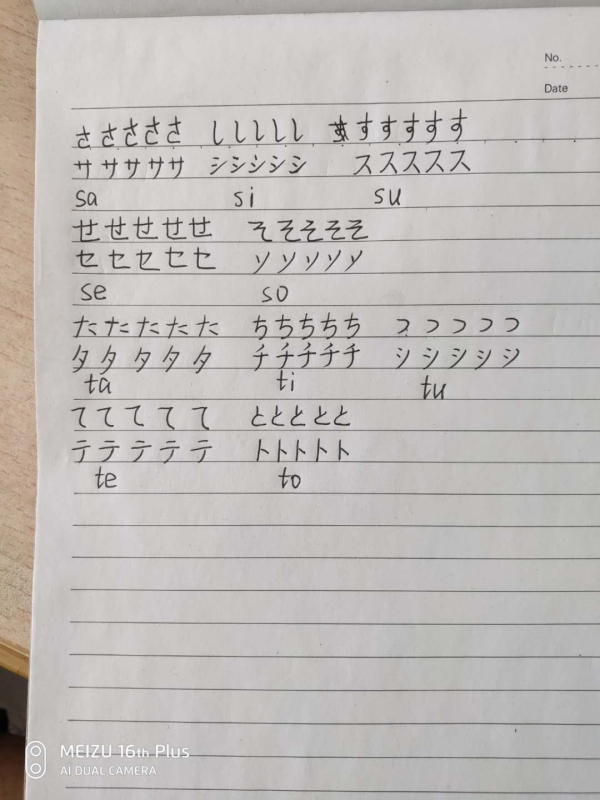 No.
Date
さささささ ししししし すすすすすす
ササササササ シシシシシ ススススス
sa si su
せせせせせ そそそそそ
セセセセセ ソソソソソ
se so
たたたたた ちちちちち つつつつつ
タタタタタ チチチチチ シシシシシ
ta ti tu
ててててて ととととと
テテテテテ トトトトト
te to
MEIZU 16th Plus
AI DUAL CAMERA